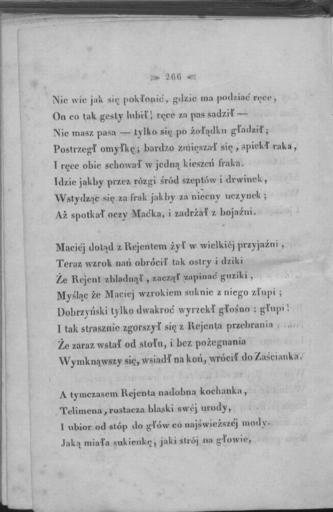 266
Nie wie jak się pokłonić, gdzie ma podziać ręce,
On co tak gesty lubił! ręce za pas sadził —
Nie masz pasa — tylko się po żołądku gładził;
Postrzegł omyłkę; bardzo zmięszał się, spiekł raka,
I ręce obie schował w jedną kieszeń fraka.
Idzie jakby przez rózgi śród szeptów i drwinek,
Wstydząc się za frak jakby za niecny uczynek;
Aż spotkał oczy Maćka, i zadrżał z bojaźni.
Maciéj dotąd z Rejentem żył w wielkiéj przyjaźni,
Teraz wzrok nań obrócił tak ostry i dziki
Że Rejent zbladnął, zaczął zapinać guziki,
Myśląc że Maciej wzrokiem suknie z niego złupi;
Dobrzyński tylko dwakroć wyrzekł głośno: głupi!
I tak strasznie zgorszył się z Rejenta przebrania
Że zaraz wstał od stołu, i bez pożegnania
Wymknąwszy się, wsiadł na koń, wrócił do Zaścianka.
A tymczasem Rejenta nadobna kochanka,
Telimena, roztacza blaski swéj urody,
I ubior od stóp do głów co najświeższéj mody.
Jaką miała sukienkę, jaki strój na głowie,